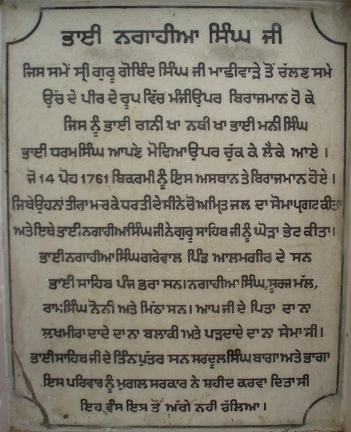 ਭਾਈ ਨਗਾਹੀਆ ਸਿੰਘ ਜੀ
ਜਿਸ ਸਮੇਂ ਸ੍ਰੀ ਗੁਰੂ ਗੋਬਿੰਦ ਸਿੰਘ ਜੀ ਮਾਛੀਵਾੜੇ ਤੋਂ ਚੱਲਣ ਸਮੇ
ਉੱਚ ਦੇ ਪੀਰ ਦੇ ਰੂਪ ਵਿੱਚ ਮੰਜੀ ਉਪਰ ਬਿਰਾਜਮਾਨ ਹੋ ਕੇ
ਜਿਸ ਨੂੰ ਭਾਈ ਗਨੀ ਖਾ ਨਬੀ ਖਾ ਭਾਈ ਮਨੀ ਸਿੰਘ
ਭਾਈ ਧਰਮ ਸਿੰਘ ਆਪਣੇ ਮੋਢਿਆ ਉਪਰ ਚੁੱਕ ਕੇ ਲੈਕੇ ਆਏ ।
ਜੋ 14 ਪੋਹ 1761 ਬਿਕਰਮੀ ਨੂੰ ਇਸ ਅਸਥਾਨ ਤੇ ਬਿਰਾਜਮਾਨ ਹੋਏ ।
ਜਿਥੇ ਉਹਨਾਂ ਤੀਰ ਮਾਰਕੇ ਧਰਤੀ ਦੇ ਸੀਨੇ ਚੋ ਅਮ੍ਰਿਤ ਜਲ ਦਾ ਸੋਮਾ ਪ੍ਰਗਟ ਕੀਤਾ
ਅਤੇ ਇਥੇ ਭਾਈ ਨਗਾਹੀਆ ਸਿੰਘ ਜੀ ਨੇ ਗੁਰੂ ਸਾਹਿਬ ਜੀ ਨੂੰ ਘੋੜਾ ਭੇਟ ਕੀਤਾ।
ਭਾਈ ਨਗਾਹੀਆ ਸਿੰਘ ਗਰੇਵਾਲ ਪਿੰਡ ਆਲਮਗੀਰ ਦੇ ਸਨ
ਭਾਈ ਸਾਹਿਬ ਪੰਜ ਭਰਾ ਸਨ। ਨਗਾਹੀਆ ਸਿੰਘ, ਸੂਰਜ ਮੱਲ,
ਰਾਮ ਸਿੰਘ ਨੋਨੀ ਅਤੇ ਮਿੱਠਾ ਸਨ। ਆਪ ਜੀ ਦੇ ਪਿਤਾ ਦਾ ਨਾ
ਲਖਮੀਰਾ ਦਾਦੇ ਦਾ ਨਾ ਬਲਾਕੀ ਅਤੇ ਪੜਦਾਦੇ ਦਾ ਨਾ ਸੇਮਾ ਸੀ।
ਭਾਈ ਸਾਹਿਬ ਜੀ ਦੇ ਤਿੰਨ ਪੁੱਤਰ ਸਨ ਸਰਦੂਲ ਸਿੰਘ ਬਾਗਾ ਅਤੇ ਭਾਗਾ
ਇਸ ਪਰਿਵਾਰ ਨੂੰ ਮੁਗਲ ਸਰਕਾਰ ਨੇ ਸ਼ਹੀਦ ਕਰਵਾ ਦਿਤਾ ਸੀ
ਇਹ ਵੰਸ ਇਸ ਤੋਂ ਅੱਗੇ ਨਹੀ ਚੱਲਿਆ ।